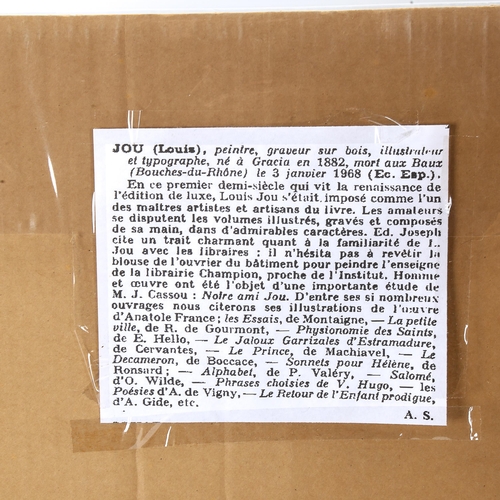 JOU (Louis), peintre, graveur sur bois, illustrateur
et typographe, né à Gracia en 1882, mort aux Baux
(Bouches-du-Rhône) le 3 janvier 1968 (Ec. Esp.).
En ce premier demi-siècle qui vit la renaissance de
l'édition de luxe, Louis Jou s'était imposé comme l'un
des maîtres artistes et artisans du livre. Les amateurs
se disputent les volumes illustrés, gravés et composés
de sa main, dans d'admirables caractères. Ed. Joseph
cite un trait charmant quant à la familiarité de L.
Jou avec les libraires : il n'hésita pas à revêtir la
blouse de l'ouvrier du bâtiment pour peindre l'enseigne
de la librairie Champion, proche de l'Institut. Homme
et œuvre ont été l'objet d'une importante étude de
M. J. Cassou : Notre ami Jou. D'entre ses si nombreux
ouvrages nous citerons ses illustrations de l'œuvre
d'Anatole France ; les Essais, de Montaigne, — La petite
ville, de R. de Gourmont, — Physionomie des Saints,
de E. Hello, — Le Jaloux Garrizales d'Estramadure,
de Cervantes, — Le Prince, de Machiavel, — Le
Decameron, de Boccace, — Sonnets pour Hélène, de
Ronsard ; — Alphabet, de P. Valéry, — Salomé,
d'O. Wilde, — Phrases choisies de V. Hugo, — les
Poésies d'A. de Vigny, — Le Retour de l'Enfant prodigue,
d'A. Gide, etc.
A. S.